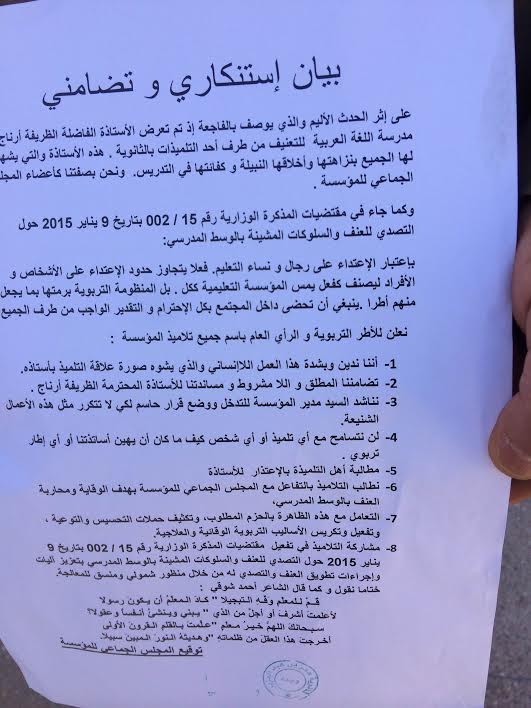 بيان إستنكاري و تضامني
على إثر الحدث الأليم والذي يوصف بالفاجعة إذ تم تعرض الأستاذة الفاضلة الظريفة أرناج
مدرسة اللغة العربية للتعنيف من طرف أحد التلميذات بالثانوية . هذه الأستاذة والتي يشه
لها الجميع بنزاهتها وأخلاقها النبيلة و كفائتها في التدريس. ونحن بصفتنا كأعضاء المجل
الجماعي للمؤسسة .
وكما جاء في مقتضيات المذكرة الوزارية رقم 15 / 002 بتاريخ 9 يناير 2015 حول
التصدي للعنف والسلوكات المشينة بالوسط المدرسي:
بإعتبار الإعتداء على رجال و نساء التعليم. فعلا يتجاوز حدود الإعتداء على الأشخاص و
الأفراد ليصنف كفعل يمس المؤسسة التعليمية ككل . بل المنظومة التربوية برمتها بما يجعل
منهم أطرا . ينبغي أن تحضى داخل المجتمع بكل الإحترام و التقدير الواجب من طرف الجميع
نعلن للأطر التربوية و الرأي العام باسم جميع تلاميذ المؤسسة :
1- أننا ندين وبشدة هذا العمل اللاإنساني والذي يشوه صورة علاقة التلميذ بأستاذه.
2- تضامننا المطلق و اللا مشروط و مساندتنا للأستاذة المحترمة الظريفة أرناج .
3- نناشد السيد مدير المؤسسة للتدخل ووضع قرار حاسم لكي لا تتكرر مثل هذه الأعمال
الشنيعة.
4- لن نتسامح مع أي تلميذ أو أي شخص كيف ما كان أن يهين أساتذتنا أو أي إطار
تربوي .
5- مطالبة أهل التلميذة بالإعتذار للأستاذة
6- نطالب التلاميذ بالتفاعل مع المجلس الجماعي للمؤسسة بهدف الوقاية ومحاربة
العنف بالوسط المدرسي،
7- التعامل مع هذه الظاهرة بالحزم المطلوب، وتكثيف حملات التحسيس والتوعية ،
وتفعيل وتكريس الأساليب التربوية الوقائية والعلاجية.
8- مشاركة التلاميذ في تفعيل مقتضيات المذكرة الوزارية رقم 15 / 002 بتاريخ 9
يناير 2015 حول التصدي للعنف والسلوكات المشينة بالوسط المدرسي بتعزيز آليات
وإجراءات تطويق العنف والتصدي له من خلال منظور شمولي ومنسق للمعالجة.
ختاما نقول و كما قال الشاعر أحمد شوقي :
قـمْ للـمعلم وفـه الـتبجيلا " كـاد الـمعلمُ أن يـكون رسولا
أعلمتَ أشرفَ أو أجلَ من الذي " يـبني وينشئُ أنـفساً وعقولا؟
سـبحانكَ اللهمَّ خـيرُ مـعلمٍ "علَّمتَ بـالقلم الـقرون الأولى
أخرجت هذا العقل من ظلماته "وهديتهُ النورَ المبين سبيلا.
توقيع المجلس الجماعي للمؤسسة